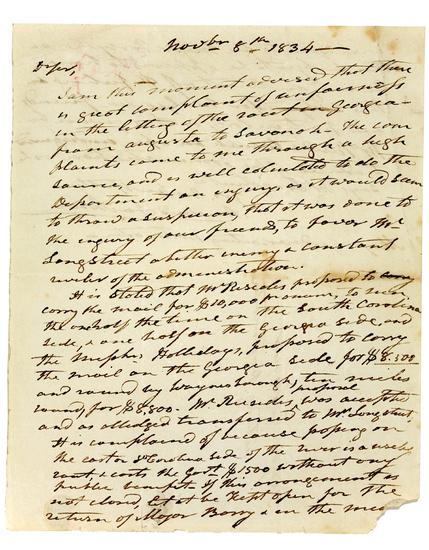 Novbr 8th 1834—
Dr Sir,
I am this moment advised that there
is great complaint of unfairness
in the letting of the rout in Georgia—
from augusta to Savanah—The com
plaints come to me through a high
source, and is well calculated to do the
Department an injury, as it would seem
to throw a suspicion, that it was done to
the injury of our friends, to favor Mr
Longstreet a bitter enemy & constant
reviler of the administration.
It is stated that Mr Reeside proposed to carry
carry the mail for $10,000 pr annum, to run
the one half the time on the South Carolina
side, & one half on the Georgia side, and
the Messrs. Holledays, proposed to carry
the mail on the Georgia side for $8.300
and round by Waynesborough, ten miles
round, for $8,800. Mr Reesides proposal was accepted
and as alledged transferred to Mr Longstreet.
It is complained of because passing on
the east or So Carolina side of the river is a useless
rout, & costs the Govt $1500 without any
public benefit. If this arrangement is
not closed, let it be kept open for the
return of Major Barry & in the mean